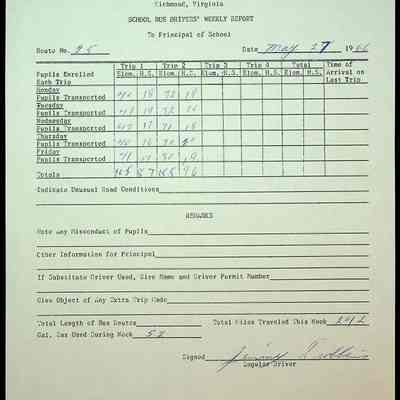 Richmond, Virginia
SCHOOL BUS DRIVERS' WEEKLY REPORT
To Principal of School
Route No. 25 Date May 27 1966
Trip 1 Trip 2 Trip 3 Trip 4 Total Time of
Pupils Enrolled Elem. H.S. Elem. H.S. Elem. H.S. Elem. H.S. Elem. H.S. Arrival on
Each Trip Last Trip
Monday
Pupils Transported 18 32 18
Tuesday
Pupils Transported 19 32
Wednesday
Pupils Transported 17 31 18
Thursday
Pupils Transported 16 30
Friday
Pupils Transported 30
Totals 87 96
Indicate Unusual Road Conditions
REMARKS
Note Any Misconduct of Pupils
Other Information for Principal
If Substitute Driver Used, Give Name and Driver Permit Number
Give Object of Any Extra Trip Made
Total Length of Bus Routes Total Miles Traveled This Week 242
Gal. Gas Used During Week 52
Signed
Regular Driver